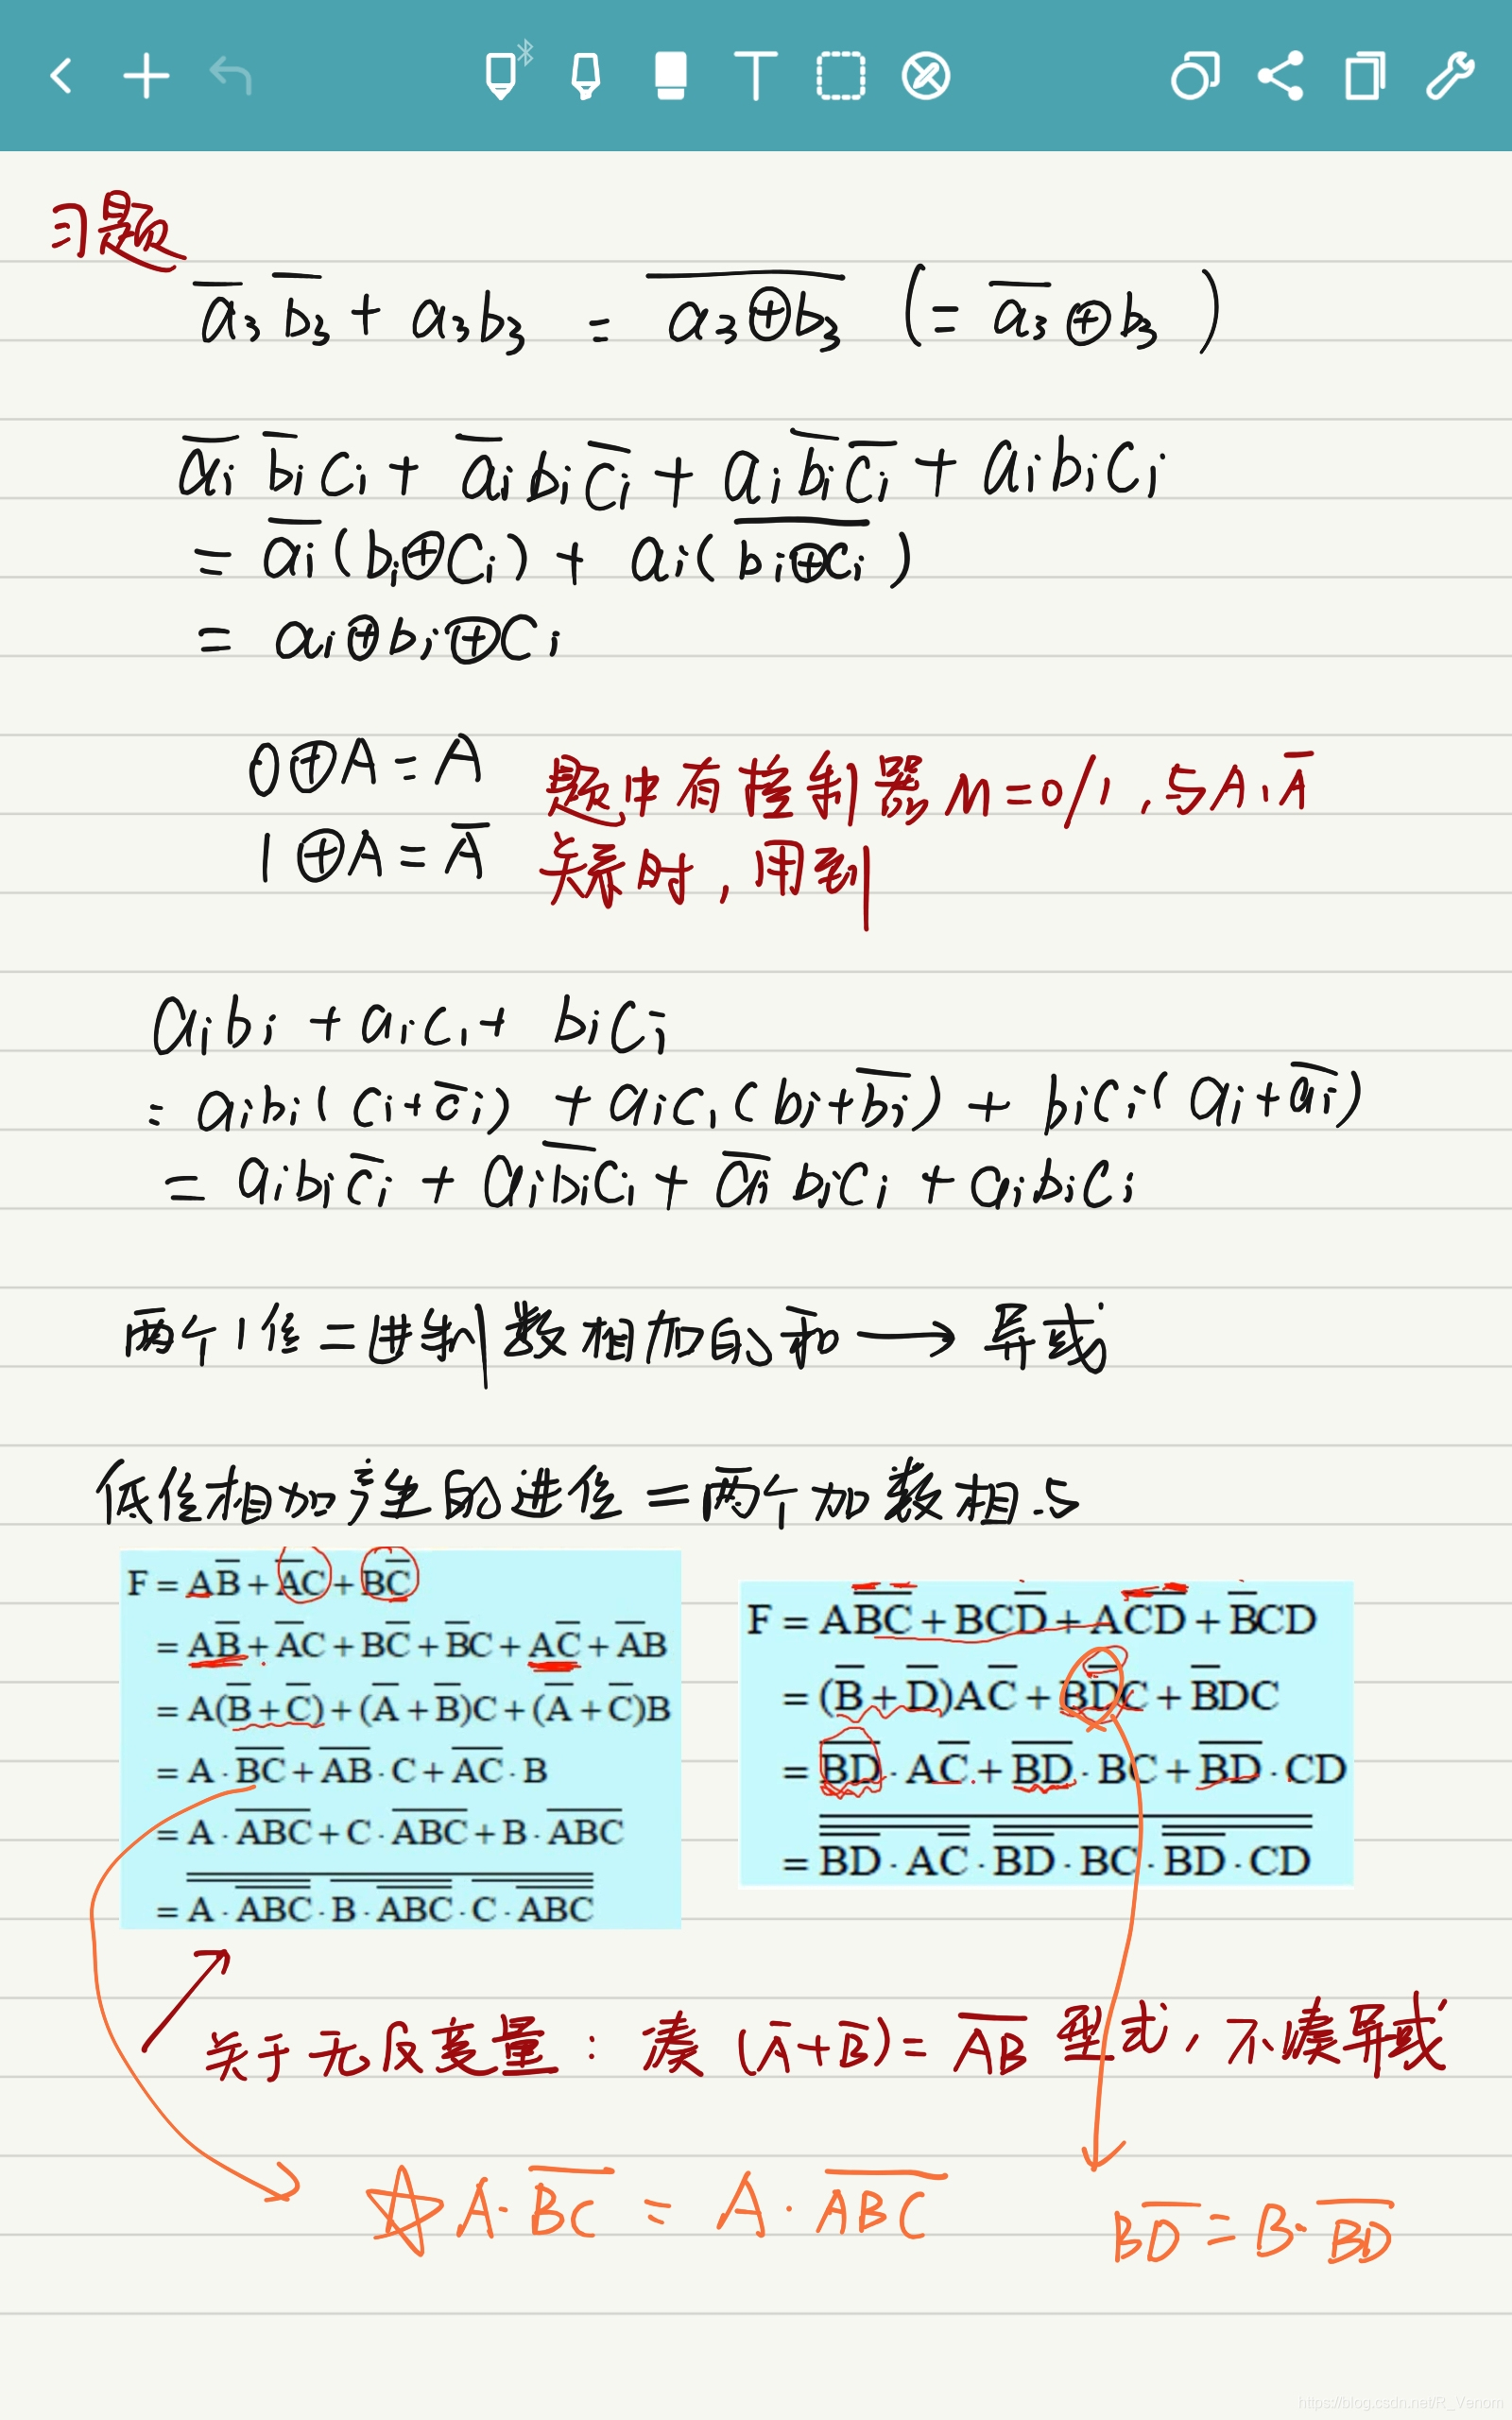 习题
a̅₃ b̅₃ + a₃b₃ = \overline{a₃⊕b₃} (= \overline{a₃}⊕b₃)
\overline{ai} \overline{bi} Ci + \overline{ai} bi \overline{Ci} + ai \overline{bi} \overline{Ci} + aibiCi
= \overline{ai}(bi⊕Ci) + ai(\overline{bi⊕Ci})
= ai⊕bi⊕Ci
0⊕A=A
1⊕A=\overline{A}
题中有控制器M=0/1,与A、\overline{A}
关系时,用到
aibi + aici + biCi
= aibi(Ci+\overline{Ci}) + aici(bi+\overline{bi}) + biCi(ai+\overline{ai})
= aibi\overline{Ci} + ai\overline{bi}Ci + \overline{ai} biCi + aibiCi
两个1位二进制数相加的和→异或
低位相加产生的进位=两个加数相与
F = A\overline{B} + \overline{A}C + B\overline{C}
= A\overline{B} + \overline{A}C + B\overline{C} + \overline{B}C + A\overline{C} + \overline{A}B
= A(\overline{B} + \overline{C}) + (\overline{A} + \overline{B})C + (\overline{A} + \overline{C})B
= A · \overline{BC} + \overline{AB} · C + \overline{AC} · B
= A · \overline{ABC} + C · \overline{ABC} + B · \overline{ABC}
= \overline{\overline{A · \overline{ABC}} · \overline{B · \overline{ABC}} · \overline{C · \overline{ABC}}}
F = A\overline{B}\overline{C} + BC\overline{D} + A\overline{C}\overline{D} + \overline{B}CD
= (\overline{B} + \overline{D})A\overline{C} + B\overline{D}C + \overline{B}DC
= \overline{BD} · A\overline{C} + \overline{BD} · BC + \overline{BD} · CD
= \overline{\overline{\overline{BD} · A\overline{C}} · \overline{\overline{BD} · BC} · \overline{\overline{BD} · CD}}
关于无反变量:凑(\overline{A}+\overline{B})=\overline{AB}型式,不凑异或
☆A·\overline{BC} = A·\overline{ABC}
B\overline{D} = B·\overline{BD}
https://blog.csdn.net/R_Venom